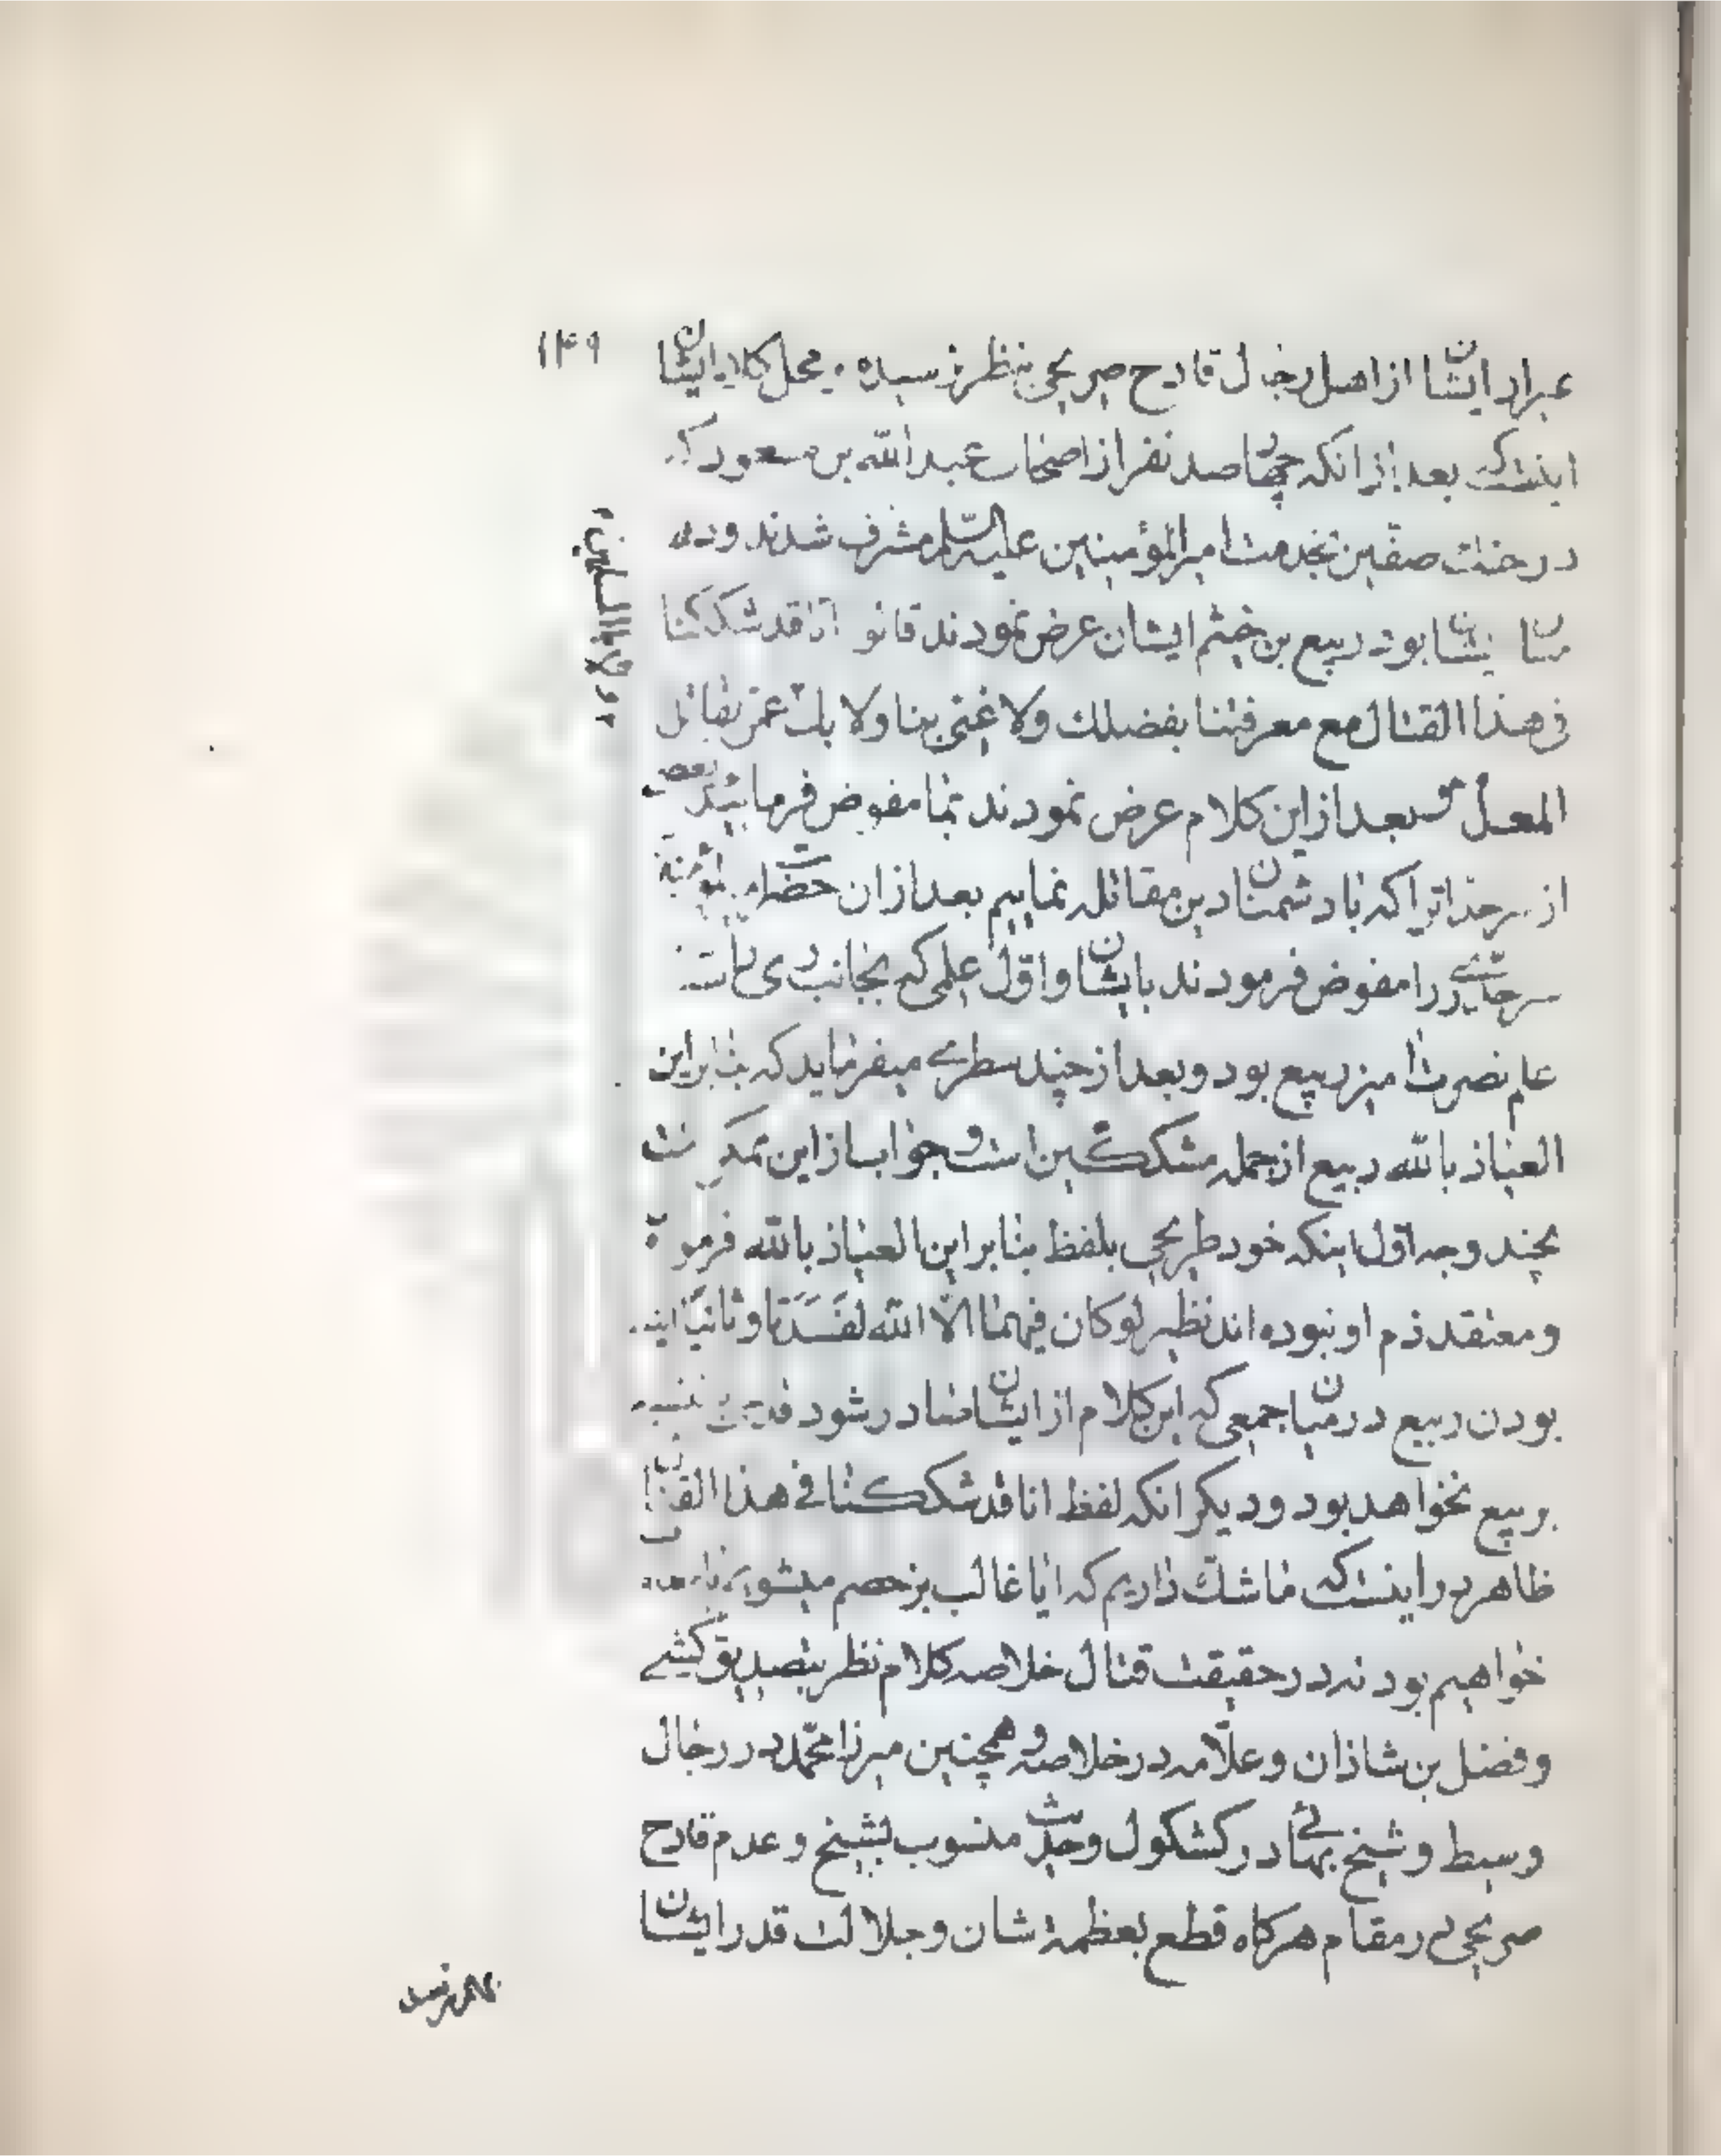 ۱۴۹
عبراد ایشان از اهل رجال قادح صریحی بنظر نرسیده محل کلام ایشان
اینست که بعد از انکه چهارصد نفر از اصحاب عبدالله بن مسعود که
در جنک صفین بخدمت امیرالمؤمنین علیه السلام مشرف شدند و در
میان ایشان بود ربیع بن خثیم ایشان عرض نمودند قالوا انا قد شککنا
فی هذا القتال مع معرفتنا بفضلك ولا غنی بنا ولا بك عمن یقاتل
و لا بالمسلمین
بعد از این کلام عرض نمودند بما مفوض فرمایید بعضی
از سرحدات را که با دشمنان دین مقاتله نماییم بعد از ان حضرت امیرالمؤمنین
سرحد ری را مفوض فرمودند بایشان و اول علمی که بجانب ری
علم نصرت امیز ربیع بود و بعد از چند سطری میفرماید که بنابراین
العیاذ بالله ربیع از جمله مشککین است و جواب از این ممکن است
بچند وجه اول اینکه خود طریحی بلفظ بنابراین العیاذ بالله فرموده
و معتقد ذم او نبوده اند نظیر لو کان فیهما الا الله لفسدتا و ثانیا اینکه
بودن ربیع در میان جمعی که این کلام از ایشان صادر شود
بربیع نخواهد بود و دیکر انکه لفظ انا قد شککنا فی هذا القتال
ظاهر در اینست که ما شك داریم که ایا غالب بر خصم میشویم یا
خواهیم بود نه در حقیقت قتال خلاصه کلام نظر بتصدیق کشی
و فضل بن شاذان و علامه در خلاصه و همچنین میرزا محمد در رجال
وسیط و شیخ بهائی در کشکول و حدیث منسوب بشیخ و عدم قادح
صریحی در مقام هرکاه قطع بعظمة شان و جلالت قدر ایشان
بهم نرسد